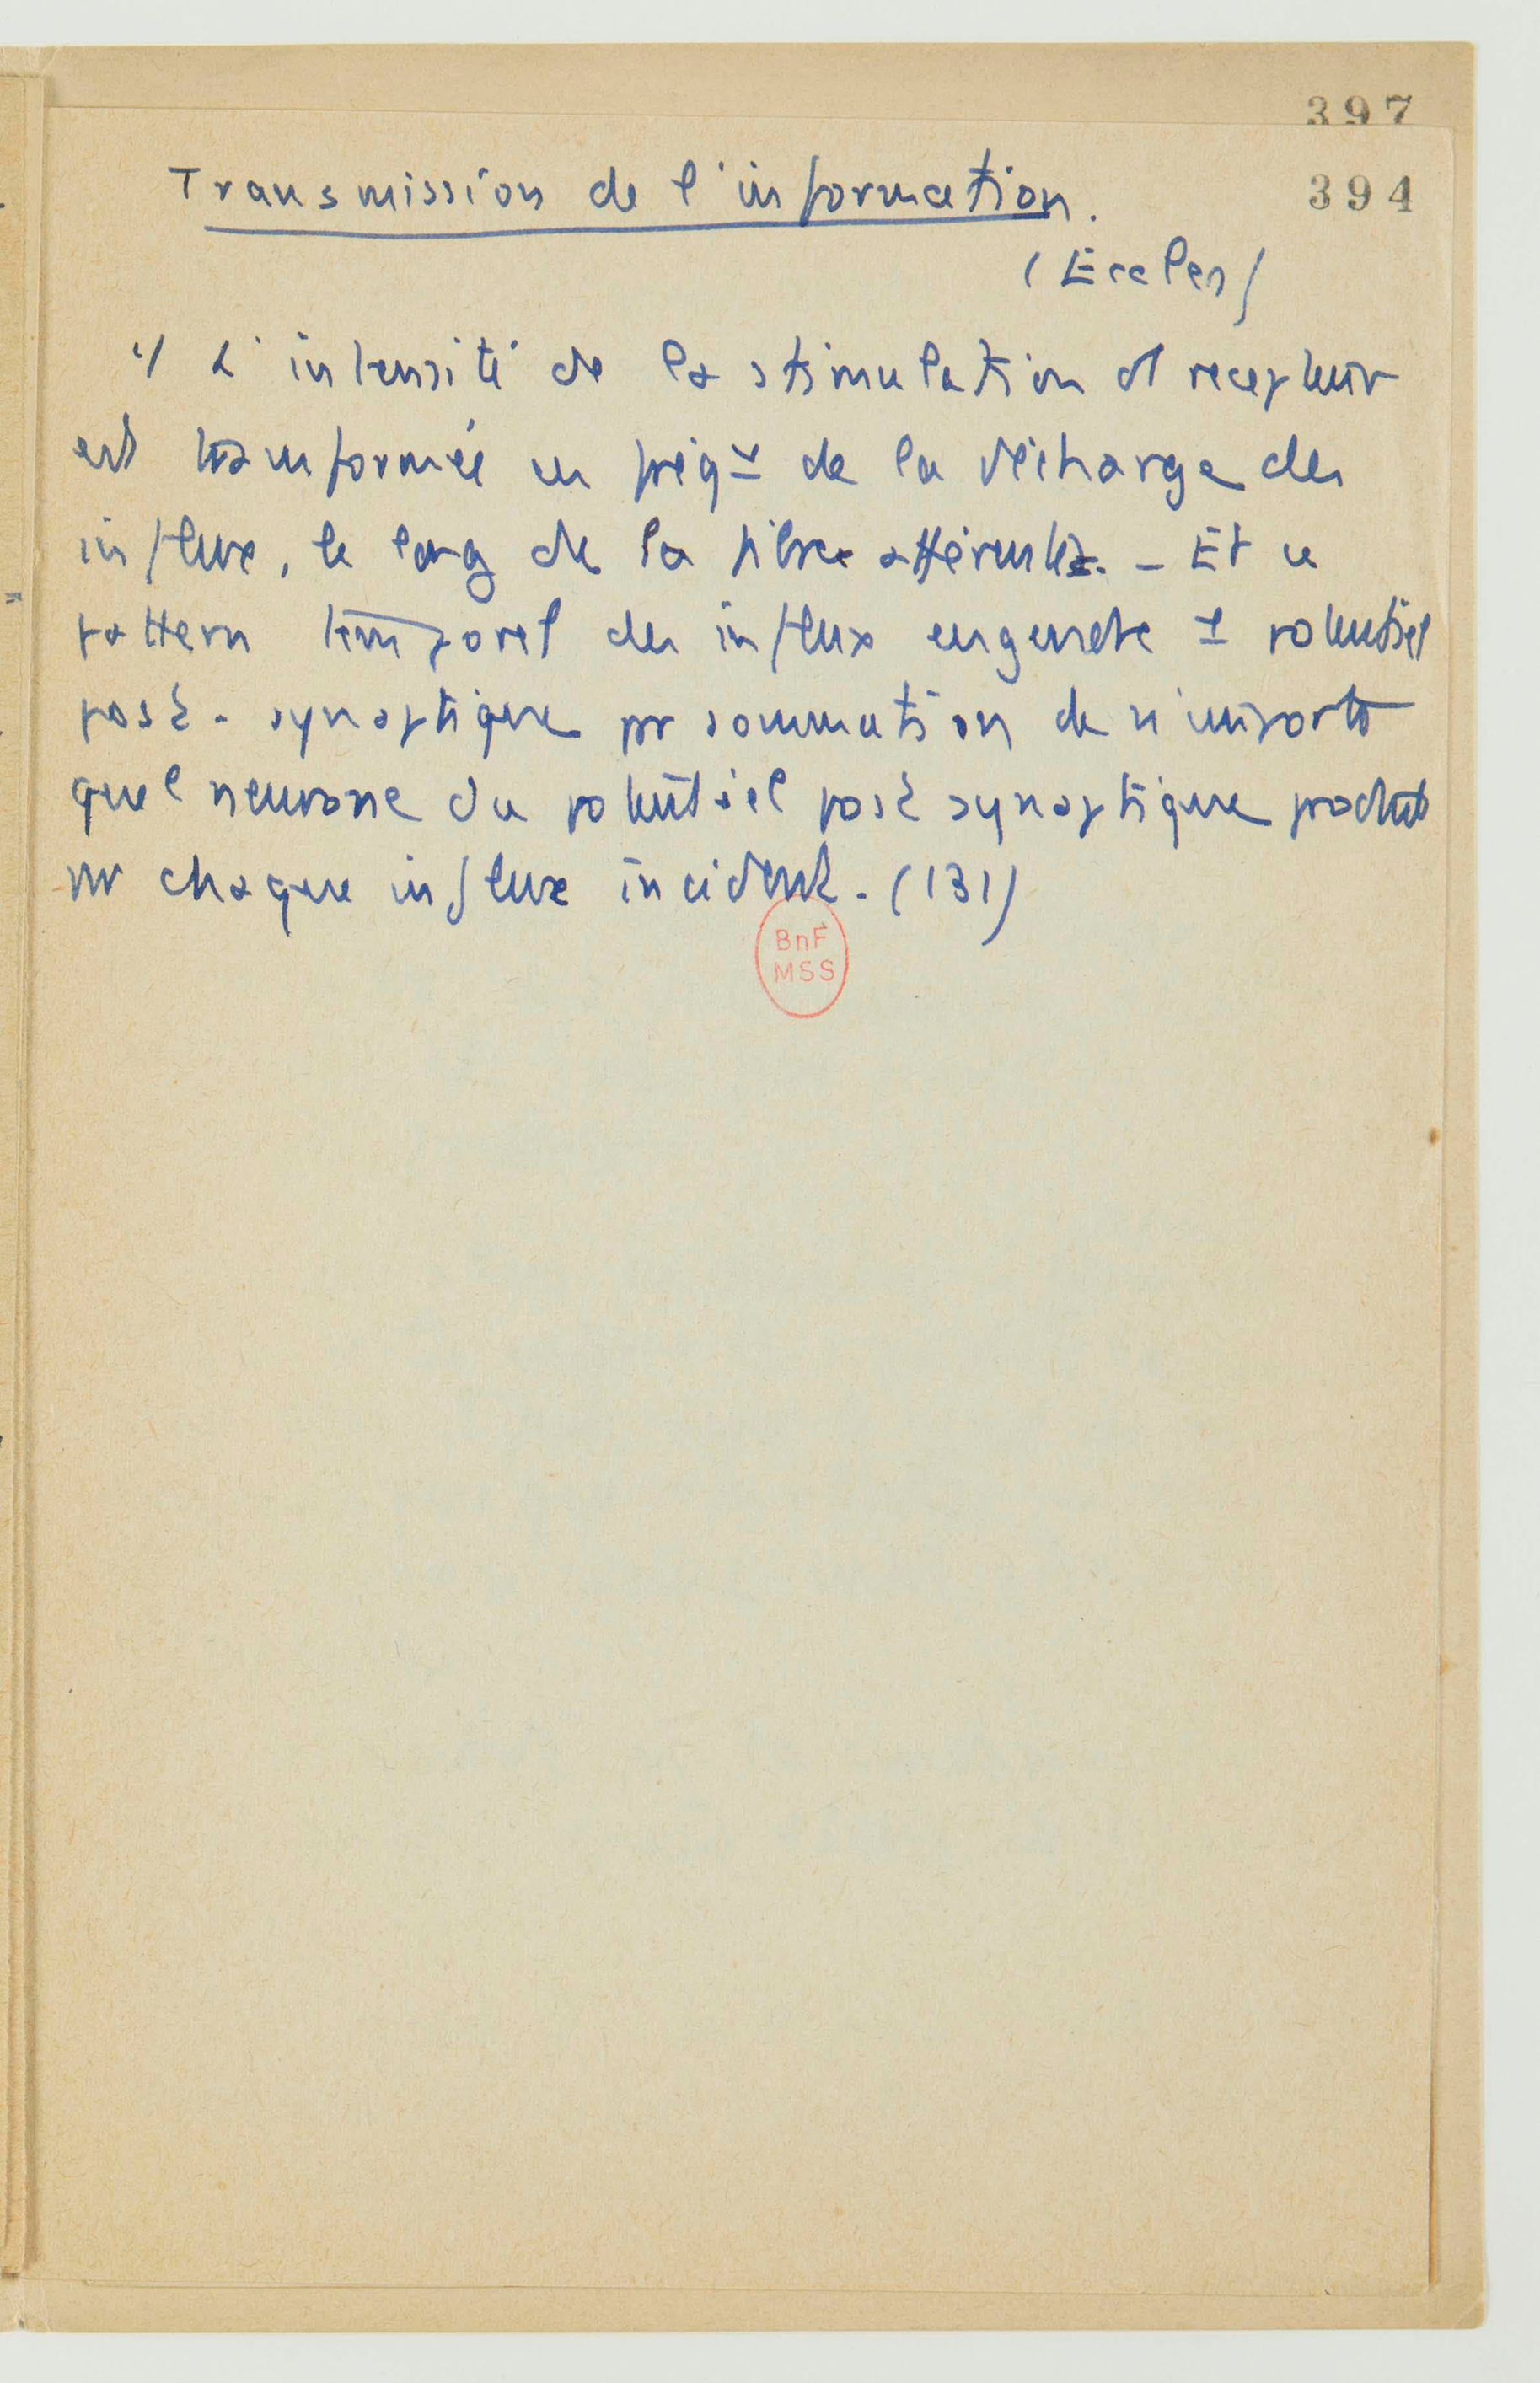 397
394
Transmission de l'information.
(Eccles)
1/ L'intensité de la stimulation d récepteur
est transformée en fréq de la décharge des
influx, le long de la fibre afférente. - Et ce
pattern temporel des influx engendre 1 potentiel
post-synaptique pr sommation de n'importe
quel neurone du potentiel post synaptique produit
pr chaque influx incident. (131)
BnF
MSS